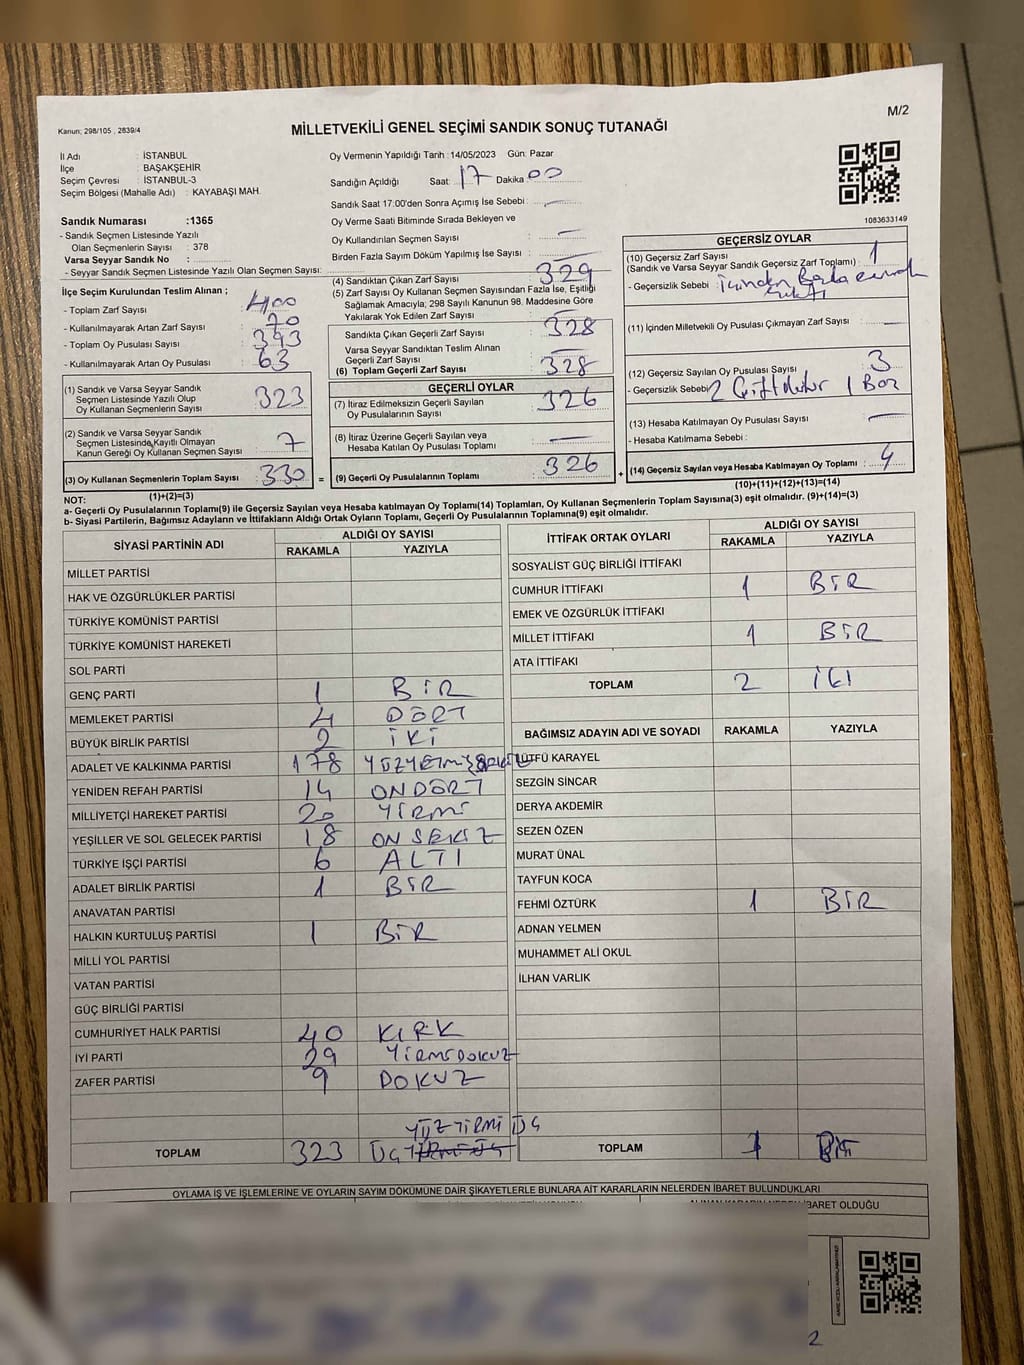 M/2
Kanun; 298/105 , 2839/4
MİLLETVEKİLİ GENEL SEÇİMİ SANDIK SONUÇ TUTANAĞI
İl Adı : İSTANBUL
İlçe : BAŞAKŞEHİR
Seçim Çevresi : İSTANBUL-3
Seçim Bölgesi (Mahalle Adı) : KAYABAŞI MAH.
Sandık Numarası :1365
- Sandık Seçmen Listesinde Yazılı
Olan Seçmenlerin Sayısı : 378
Varsa Seyyar Sandık No :
- Seyyar Sandık Seçmen Listesinde Yazılı Olan Seçmen Sayısı:
Oy Vermenin Yapıldığı Tarih : 14/05/2023 Gün: Pazar
Sandığın Açıldığı Saat: 17 Dakika 00
Sandık Saat 17:00'den Sonra Açımış İse Sebebi : —
Oy Verme Saati Bitiminde Sırada Bekleyen ve
Oy Kullandırılan Seçmen Sayısı : —
Birden Fazla Sayım Döküm Yapılmış İse Sayısı : —
1083633149
İlçe Seçim Kurulundan Teslim Alınan ;
- Toplam Zarf Sayısı : 400
- Kullanılmayarak Artan Zarf Sayısı : 70
- Toplam Oy Pusulası Sayısı : 393
- Kullanılmayarak Artan Oy Pusulası : 63
(1) Sandık ve Varsa Seyyar Sandık
Seçmen Listesinde Yazılı Olup
Oy Kullanan Seçmenlerin Sayısı : 323
(2) Sandık ve Varsa Seyyar Sandık
Seçmen Listesinde Kayıtlı Olmayan
Kanun Gereği Oy Kullanan Seçmen Sayısı : 7
(3) Oy Kullanan Seçmenlerin Toplam Sayısı : 330
(1)+(2)=(3)
(4) Sandıktan Çıkan Zarf Sayısı : 329
(5) Zarf Sayısı Oy Kullanan Seçmen Sayısından Fazla İse, Eşitliği
Sağlamak Amacıyla; 298 Sayılı Kanunun 98. Maddesine Göre
Yakılarak Yok Edilen Zarf Sayısı : —
Sandıkta Çıkan Geçerli Zarf Sayısı : 328
Varsa Seyyar Sandıktan Teslim Alınan
Geçerli Zarf Sayısı : —
(6) Toplam Geçerli Zarf Sayısı : 328
GEÇERLİ OYLAR
(7) İtiraz Edilmeksizin Geçerli Sayılan
Oy Pusulalarının Sayısı : 326
(8) İtiraz Üzerine Geçerli Sayılan veya
Hesaba Katılan Oy Pusulası Toplamı : —
= (9) Geçerli Oy Pusulalarının Toplamı : 326 +
GEÇERSİZ OYLAR
(10) Geçersiz Zarf Sayısı
(Sandık ve Varsa Seyyar Sandık Geçersiz Zarf Toplamı) : 1
- Geçersizlik Sebebi : İçinden
(11) İçinden Milletvekili Oy Pusulası Çıkmayan Zarf Sayısı : —
(12) Geçersiz Sayılan Oy Pusulası Sayısı : 3
- Geçersizlik Sebebi: 2 Çift 1 Boş
(13) Hesaba Katılmayan Oy Pusulası Sayısı : —
- Hesaba Katılmama Sebebi :
(14) Geçersiz Sayılan veya Hesaba Katılmayan Oy Toplamı : 4
(10)+(11)+(12)+(13)=(14)
NOT:
a- Geçerli Oy Pusulalarının Toplamı(9) ile Geçersiz Sayılan veya Hesaba katılmayan Oy Toplamı(14) Toplamları, Oy Kullanan Seçmenlerin Toplam Sayısına(3) eşit olmalıdır. (9)+(14)=(3)
b- Siyasi Partilerin, Bağımsız Adayların ve İttifakların Aldığı Ortak Oyların Toplamı, Geçerli Oy Pusulalarının Toplamına(9) eşit olmalıdır.
SİYASİ PARTİNİN ADI ALDIĞI OY SAYISI
RAKAMLA YAZIYLA
MİLLET PARTİSİ
HAK VE ÖZGÜRLÜKLER PARTİSİ
TÜRKİYE KOMÜNİST PARTİSİ
TÜRKİYE KOMÜNİST HAREKETİ
SOL PARTİ
GENÇ PARTİ 1 BİR
MEMLEKET PARTİSİ 4 DÖRT
BÜYÜK BİRLİK PARTİSİ 2 İKİ
ADALET VE KALKINMA PARTİSİ 178 YÜZYETMİŞSEKİZ
YENİDEN REFAH PARTİSİ 14 ONDÖRT
MİLLİYETÇİ HAREKET PARTİSİ 20 YİRMİ
YEŞİLLER VE SOL GELECEK PARTİSİ 18 ONSEKİZ
TÜRKİYE İŞÇİ PARTİSİ 6 ALTI
ADALET BİRLİK PARTİSİ 1 BİR
ANAVATAN PARTİSİ
HALKIN KURTULUŞ PARTİSİ 1 BİR
MİLLİ YOL PARTİSİ
VATAN PARTİSİ
GÜÇ BİRLİĞİ PARTİSİ
CUMHURİYET HALK PARTİSİ 40 KIRK
İYİ PARTİ 29 YİRMİDOKUZ
ZAFER PARTİSİ 9 DOKUZ
YÜZYİRMİ ÜÇ
TOPLAM 323 ÜÇ YİRMİ ÜÇ
İTTİFAK ORTAK OYLARI ALDIĞI OY SAYISI
RAKAMLA YAZIYLA
SOSYALİST GÜÇ BİRLİĞİ İTTİFAKI
CUMHUR İTTİFAKI 1 BİR
EMEK VE ÖZGÜRLÜK İTTİFAKI
MİLLET İTTİFAKI 1 BİR
ATA İTTİFAKI
TOPLAM 2 İKİ
BAĞIMSIZ ADAYIN ADI VE SOYADI RAKAMLA YAZIYLA
LÜTFÜ KARAYEL
SEZGİN SİNCAR
DERYA AKDEMİR
SEZEN ÖZEN
MURAT ÜNAL
TAYFUN KOCA
FEHMİ ÖZTÜRK 1 BİR
ADNAN YELMEN
MUHAMMET ALİ OKUL
İLHAN VARLIK
TOPLAM 1 BİR
OYLAMA İŞ VE İŞLEMLERİNE VE OYLARIN SAYIM DÖKÜMÜNE DAİR ŞİKAYETLERLE BUNLARA AİT KARARLARIN NELERDEN İBARET BULUNDUKLARI
İBARET OLDUĞU
2